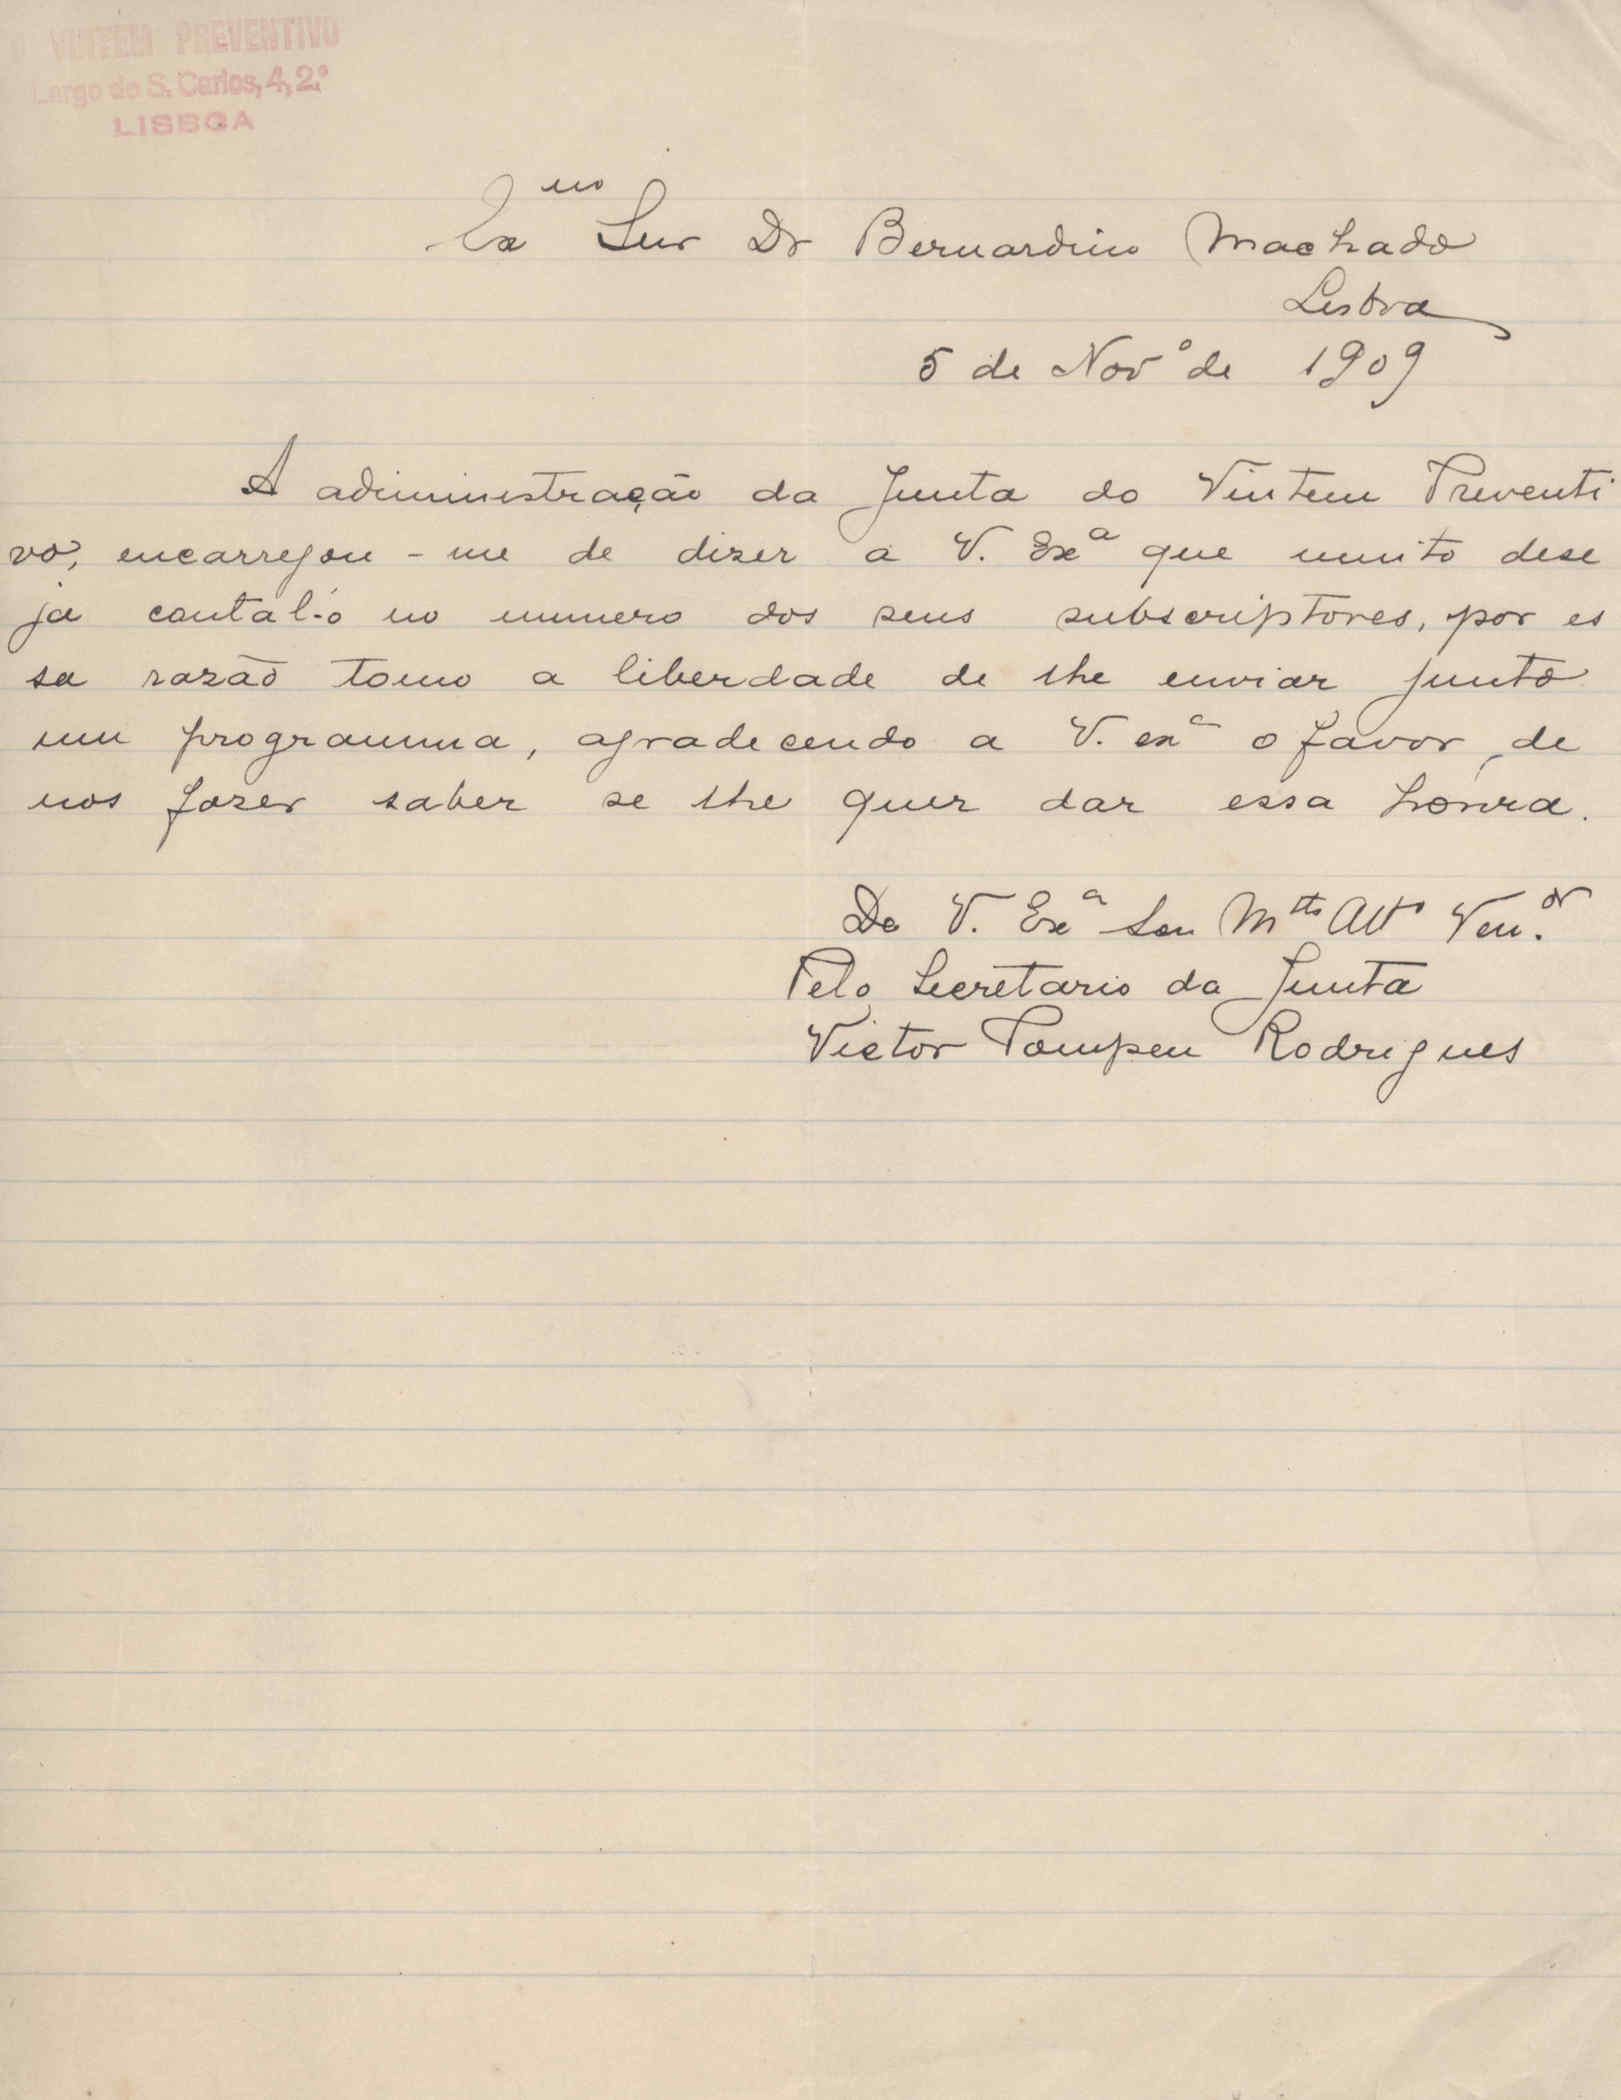 O VINTEM PREVENTIVO
Largo de S. Carlos, 4, 2.º
LISBOA
Exmo Snr Dr Bernardino Machado
Lisboa
5 de Novº de 1909
A administração da Junta do Vintem Preventi
vo, encarregou-me de dizer a V. Exª que muito dese
ja contal-o no numero dos seus subscriptores, por es
sa razão tomo a liberdade de lhe enviar junto
um programma, agradecendo a V. exª o favor de
nos fazer saber se lhe quer dar essa honra.
De V. Exª Seu Mtto Atto Ven.or
Pelo Secretario da Junta
Victor Pompeu Rodrigues